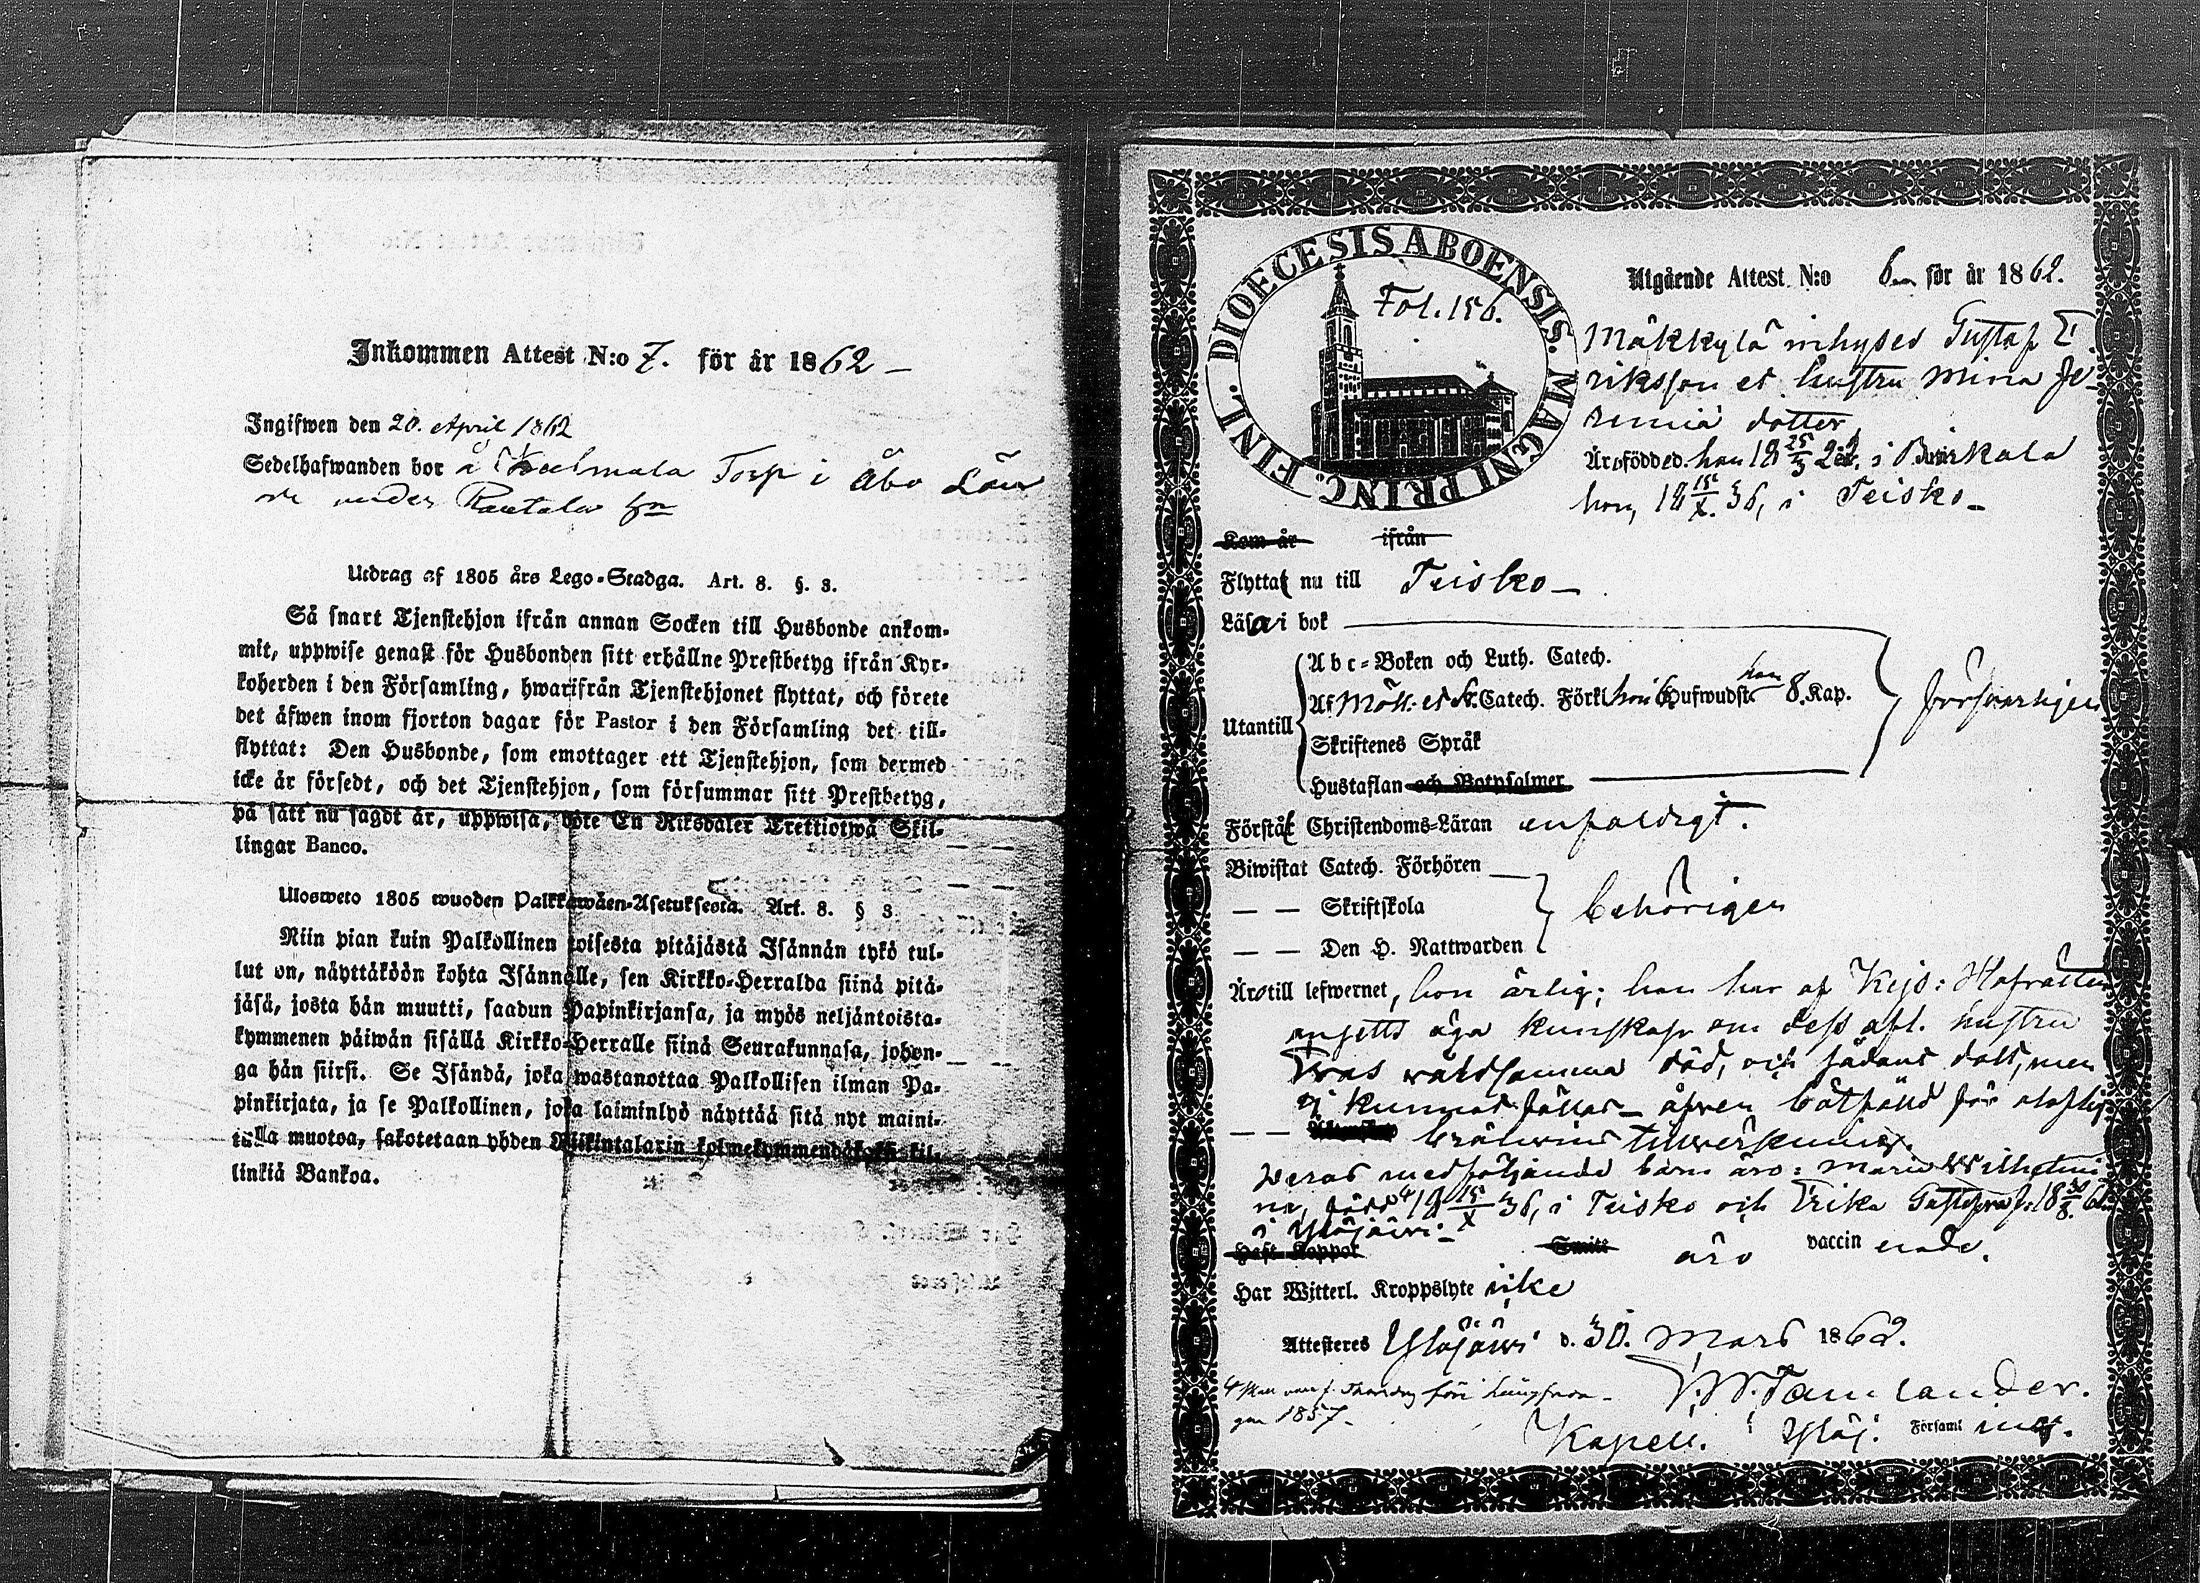 Inkommen Attest N:o 7. för år 1862 —
Ingifwen den 20. April 1862
Sedelhafwanden bor å Torp i Åbo Län
under Rautala
Utdrag af 1805 års Lego-Stadga. Art. 8. §. 3.
Så snart Tjenstehjon ifrån annan Socken till Husbonde ankom-
mit, uppwise genast för Husbonden sitt erhållne Prestbetyg ifrån Kyr-
koherden i den Församling, hwarifrån Tjenstehjonet flyttat, och förete
det äfwen inom fjorton dagar för Pastor i den Församling det till-
flyttat: Den Husbonde, som emottager ett Tjenstehjon, som dermed
icke är försedt, och det Tjenstehjon, som försummar sitt Prestbetyg,
på sätt nu sagdt är, uppwisa, böte En Riksdaler Trettiotwå Skil-
lingar Banco.
Ulosweto 1805 wuoden Palkkawäen-Asetuksesta. Art. 8. § 3.
Niin pian kuin Palkollinen toisesta pitäjästä Isännän tykö tul-
lut on, näyttäköön kohta Isännälle, sen Kirkko-Herralda siinä pitä-
jäsä, josta hän muutti, saadun Papinkirjansa, ja myös neljäntoista-
kymmenen päiwän sisällä Kirkko-Herralle siinä Seurakunnasa, johon-
ga hän siirsi. Se Isändä, joka wastanottaa Palkollisen ilman Pa-
pinkirjata, ja se Palkollinen, joka laiminlyö näyttää sitä nyt maini-
tulla muotoa, sakotetaan yhden Riikintalarin kolmekymmendäkaksi kil-
linkiä Bankoa.
DIOECESIS ABOENSIS. MAGNI PRINC. FINL.
Fol. 156.
Utgående Attest N:o 6 för år 1862.
Mäkkylä inhyses Gustaf E
riksson et hustru Mina Je
remiä dotter
Äro födde d. han 18 25/3 22. i Birkala
hon, 18 15/X 36, i Teisko —
Kom år ifrån
Flyttat nu till Teisko —
Läsa i bok
Abc-Boken och Luth. Catech.
Af Catech. Förkl. hon 6 Hufwudst. han 8. Kap.
Utantill
försvarligen
Skriftenes Språk
Hustaflan och Botpsalmer
Förstå Christendoms-Läran enfaldigt.
Biwistat Catech. Förhören
— — Skriftskola
behörigen
— — Den H. Nattwarden
Äro till lefwernet, hon ärlig; han har af Kejs: Hofrätten
ansetts äga kunskap om dess afl. hustru
våldsamma död, och sådant doldt, men
ej kunnat fällas — äfven bötfälld för olaglig
— — bränvins tillverkning.
Deras medföljande barn äro: Maria Wilhelmi
na, född 18 15/X 36, i Teisko och Erika Gustafva f. 18 30/8 6
i Ylöjärvi —
Haft Koppor Smitt äro vaccin erade.
Har Witterl. Kroppslyte icke
Attesteres Ylöjärvi d. 30. Mars 1862.
Tamlander.
1857.
Kapell. i Ylöj. Församl ing.